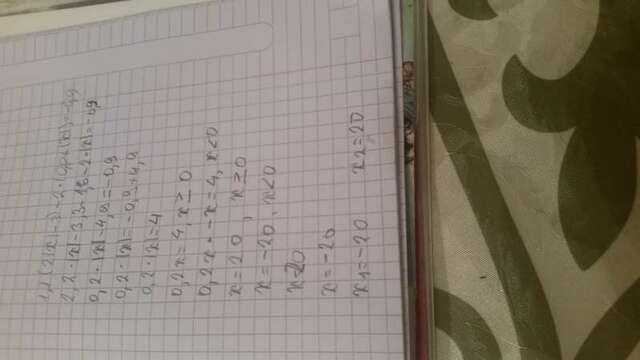 1,1(2|x|-3)-2·(0,8+|x|)=-0,9
2,2·|x|-3,3-1,6-2·|x|=-0,9
0,2·|x|-4,9=-0,9
0,2·|x|=-0,9+4,9
0,2·|x|=4
0,2x=4, x≥0
0,2x·-x=4, x<0
x=20, x≥0
x=-20, x<0
x=20
x=-20
x₁=-20 x₂=20